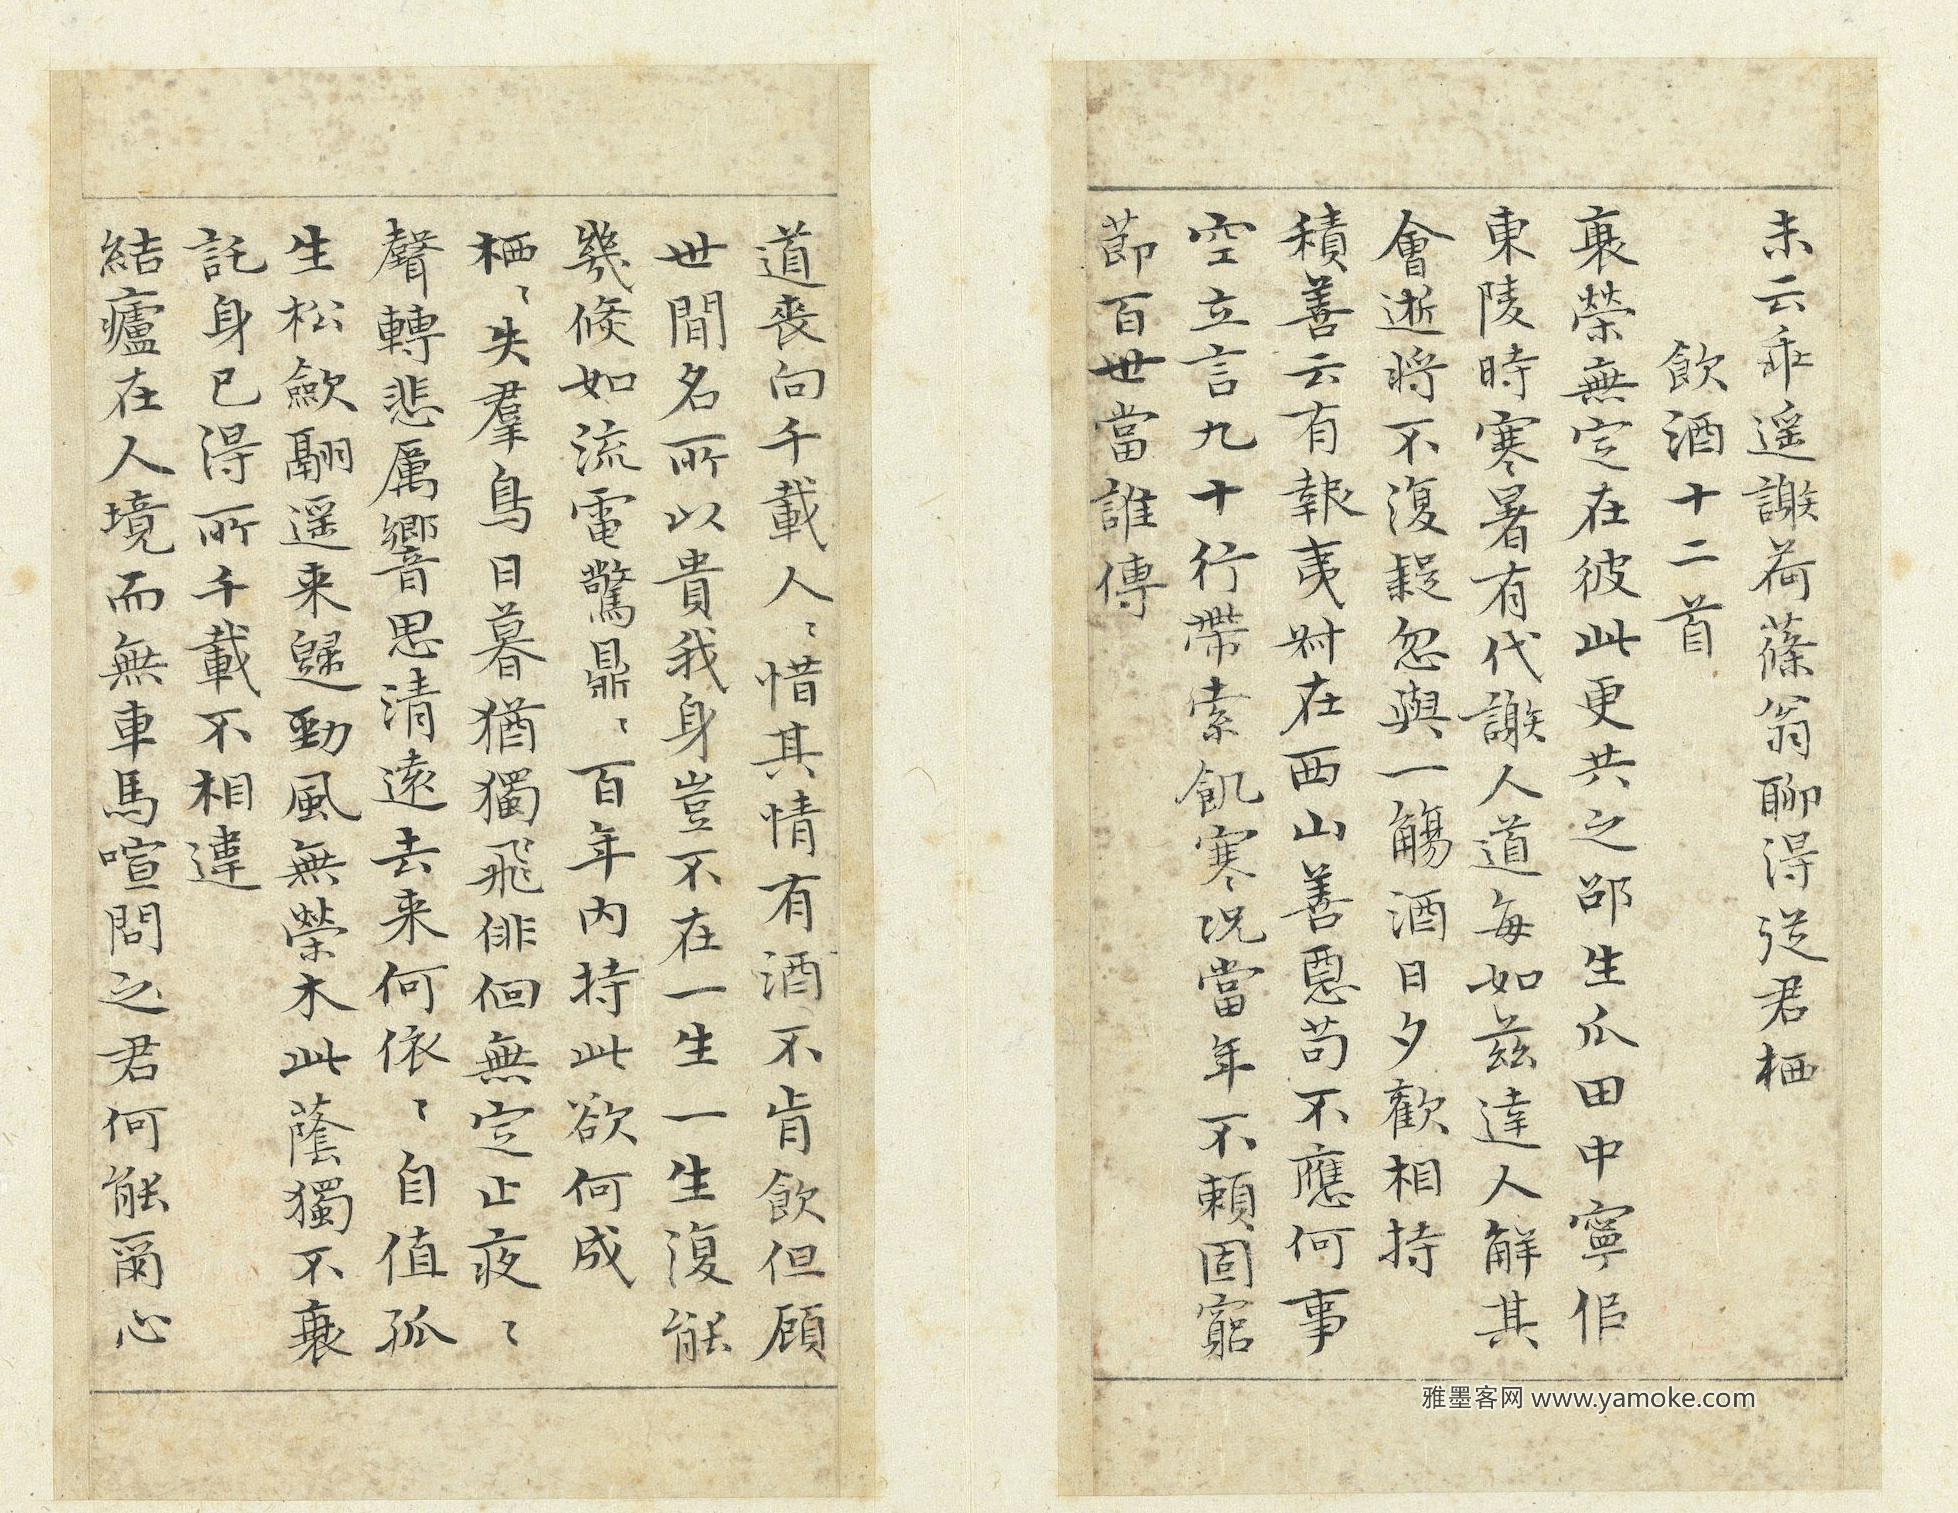 未云乖遥謝荷蓧翁聊得從君栖
飲酒十二首
衰榮無定在彼此更共之邵生瓜田中寧佀
東陵時寒暑有代謝人道每如茲達人解其
會逝將不復疑忽與一觴酒日夕歡相持
積善云有報夷叔在西山善惡苟不應何事
空立言九十行帶索飢寒況當年不賴固窮
節百世當誰傳
道喪向千載人〻惜其情有酒不肯飲但顧
世間名所以貴我身豈不在一生一生復能
幾倏如流電驚鼎〻百年內持此欲何成
栖〻失羣鳥日暮猶獨飛俳佪無定止夜〻
聲轉悲厲響思清遠去来何依〻自值孤
生松歛翮遥来歸勁風無榮木此蔭獨不衰
託身已得所千載不相違
結廬在人境而無車馬喧問之君何能爾心
雅墨客网 www.yamoke.com